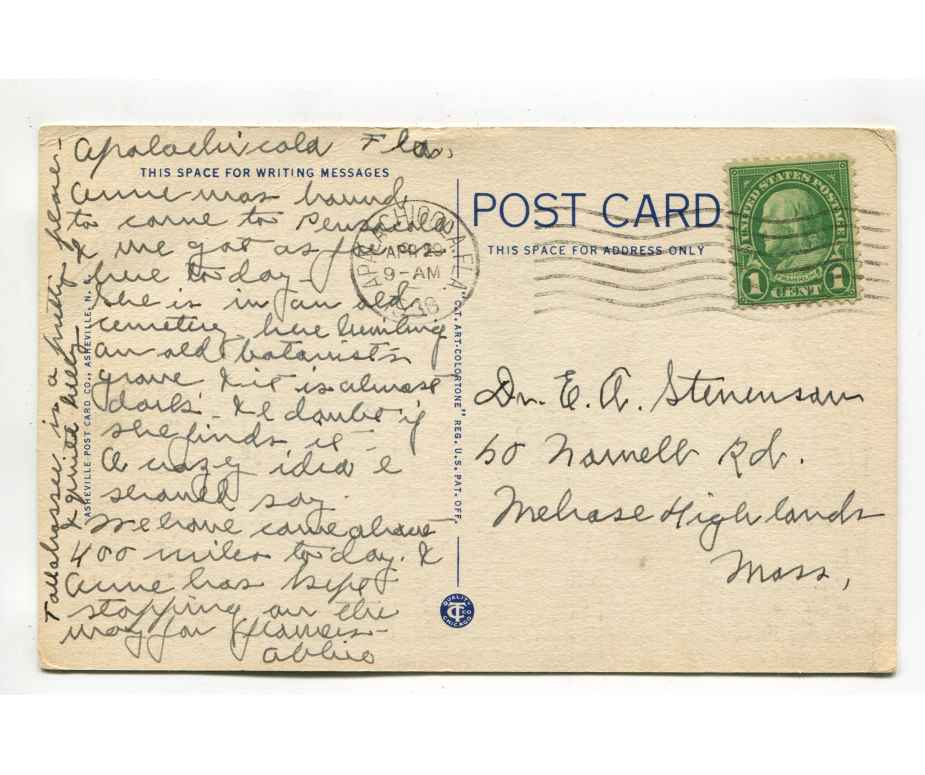 Apalachicola Fla.
THIS SPACE FOR WRITING MESSAGES
Anne was bound
to come to Pensacola
& we got as far as
here to day.
She is in an old
cemetery here hunting
an old botanist's
grave & it is almost
dark. & I doubt if
she finds it
A crazy idea I
should say.
We have come about
400 miles to day. &
Anne has kept
stopping on the
way for flowers -
Abbie
Tallahassee is a pretty place -
& quite hilly
ASHEVILLE POST CARD CO., ASHEVILLE, N. C.
APALACHICOLA, FLA.
APR 29
9-AM
"C.T. ART-COLORTONE" REG. U.S. PAT. OFF.
QUALITY
CT
CHICAGO
POST CARD
THIS SPACE FOR ADDRESS ONLY
UNITED STATES POSTAGE
FRANKLIN
1 CENT 1
Dr. E. A. Stevenson
50 Rd.
Melrose Highlands
Mass,